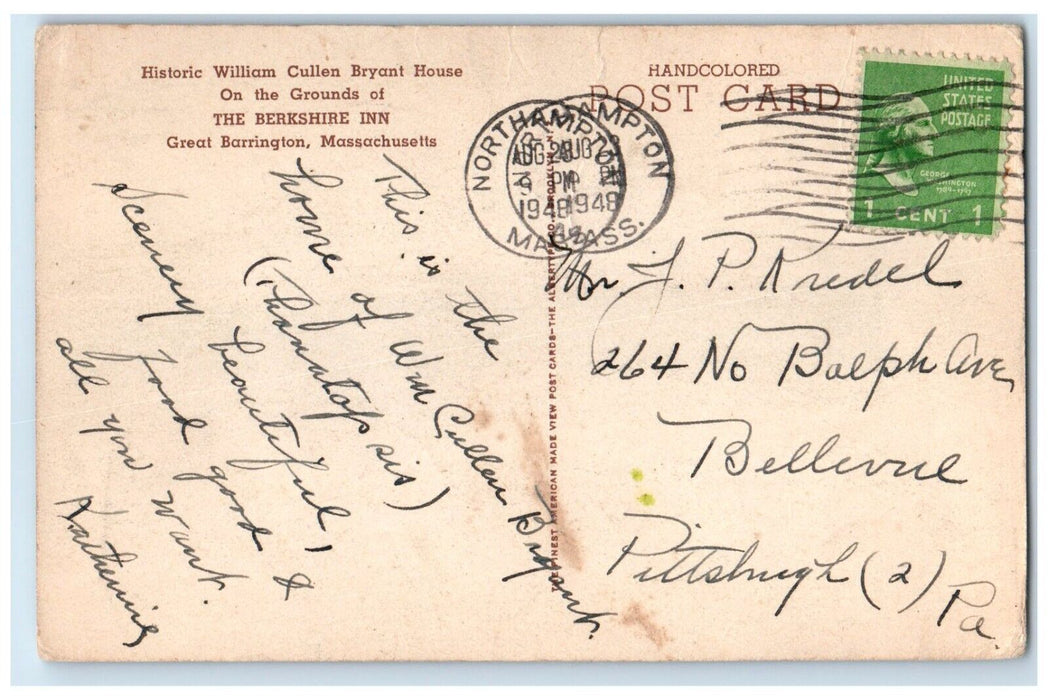 Historic William Cullen Bryant House
On the Grounds of
THE BERKSHIRE INN
Great Barrington, Massachusetts
This is the
home of Wm Cullen Bryant.
(Thanatopsis)
Scenery beautiful, &
food good &
all you want.
Katherine
THE FINEST AMERICAN MADE VIEW POST CARDS—THE ALBERTYPE CO., BROOKLYN, N.Y.
HANDCOLORED
POST CARD
NORTHAMPTON
AUG 23
PM
1948
MASS.
UNITED
STATES
POSTAGE
GEORGE
WASHINGTON
1789-1797
1 CENT 1
Mr. J. P. Kredel
264 No Balph Ave,
Bellevue
Pittsburgh (2) Pa